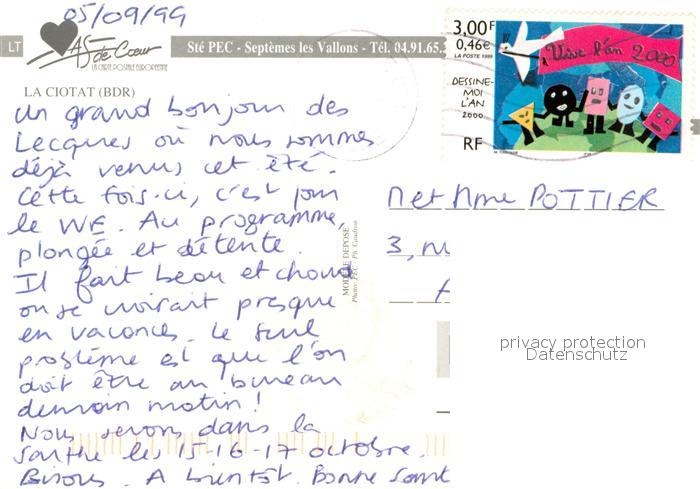 05/09/99
LT
AS de Cœur
LA CARTE POSTALE EUROPEENNE
Sté PEC - Septèmes les Vallons - Tél. 04.91.65.
LA CIOTAT (BDR)
un grand bonjour des
Lecques où nous sommes
déjà venus cet été.
Cette fois-ci, c'est pour
le WE. Au programme,
plongée et détente.
Il fait beau et chaud
on se croirait presque
en vacances. Le seul
problème est que l'on
doit être au bureau
demain matin!
Nous serons dans la
Sarthe les 15-16-17 octobre.
Bisous. A bientôt. Bonne sant
MODELE DEPOSE
Photo: PEC - Ph. Gaudron
3,00F
0,46€
LA POSTE 1999
DESSINE-
MOI
L'AN
2000
RF
Vive l'an 2000
M et Mme POTTIER
3,
privacy protection
Datenschutz